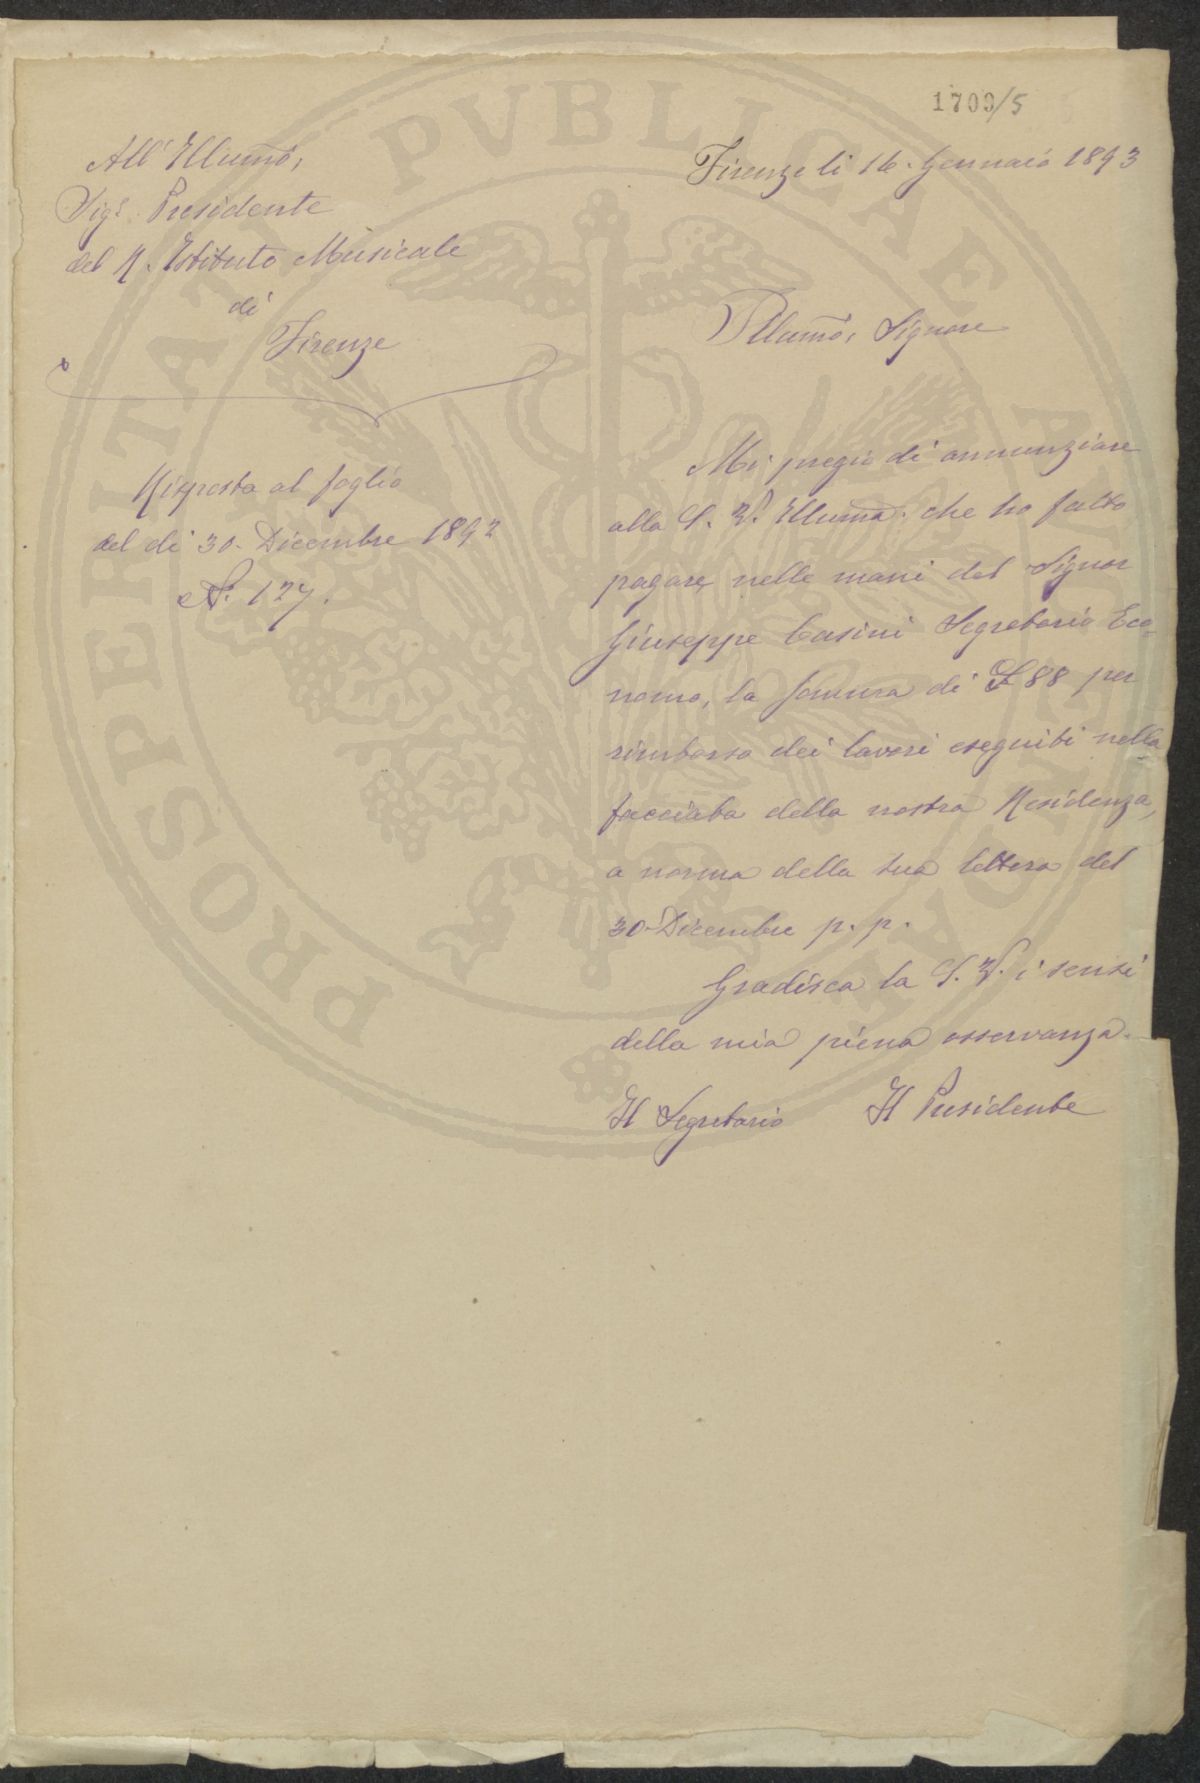 1709/5
All' Illumo,
Sigr. Presidente
del R. Istituto Musicale
di
Firenze
Risposta al foglio
del di 30. Dicembre 1892
N. 127.
Firenze li 16. Gennaio 1893
Illumo, Signore
Mi pregio di annunziare
alla S. V. Illuma. che ho fatto
pagare, nelle mani del Signor
Giuseppe Casini Segretario Eco-
nomo, la somma di £ 88 per
rimborso dei lavori eseguiti nella
facciata della nostra Residenza,
a norma della sua lettera del
30-Dicembre p. p.
Gradisca la S. V. i sensi
della mia piena osservanza.
Il Segretario Il Presidente
PROSPERITATI PVBLICAE AVGENDAE